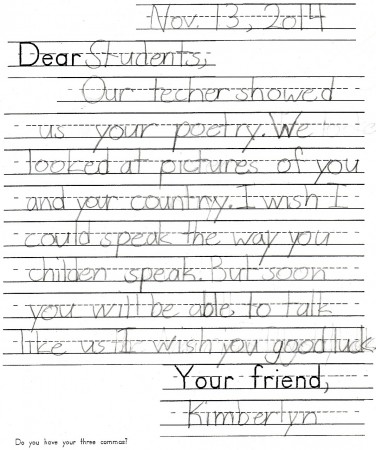 Nov. 13, 2014
Dear Students,
Our techer showed
us your poetry. We
looked at pictures of you
and your country. I wish I
could speak the way you
childen speak. But soon
you will be able to talk
like us! I wish you good luck.
Your friend,
Kimberlyn
Do you have your three commas?